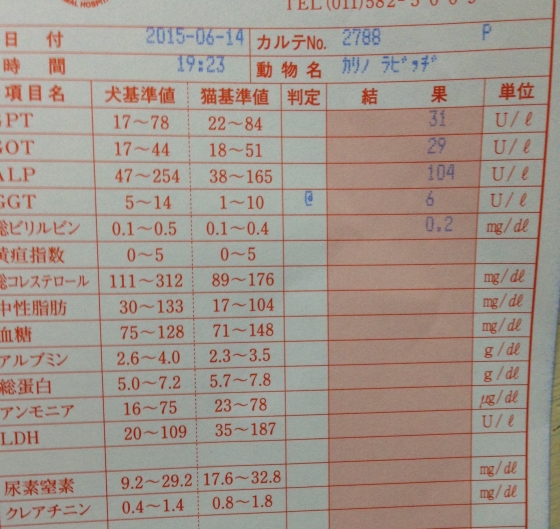 TEL(011)582-
日 付 2015-06-14 カルテNo. 2788 P
時 間 19:23 動物名 ｶﾘﾉ ﾗﾋﾞｯｷﾞ
項目名 犬基準値 猫基準値 判定 結 果 単位
GPT 17〜78 22〜84 31 U/ℓ
GOT 17〜44 18〜51 29 U/ℓ
ALP 47〜254 38〜165 104 U/ℓ
GGT 5〜14 1〜10 @ 6 U/ℓ
総ビリルビン 0.1〜0.5 0.1〜0.4 0.2 mg/dℓ
黄疸指数 0〜5 0〜5
総コレステロール 111〜312 89〜176 mg/dℓ
中性脂肪 30〜133 17〜104 mg/dℓ
血糖 75〜128 71〜148 mg/dℓ
アルブミン 2.6〜4.0 2.3〜3.5 g/dℓ
総蛋白 5.0〜7.2 5.7〜7.8 g/dℓ
アンモニア 16〜75 23〜78 μg/dℓ
LDH 20〜109 35〜187 U/ℓ
尿素窒素 9.2〜29.2 17.6〜32.8 mg/dℓ
クレアチニン 0.4〜1.4 0.8〜1.8 mg/dℓ